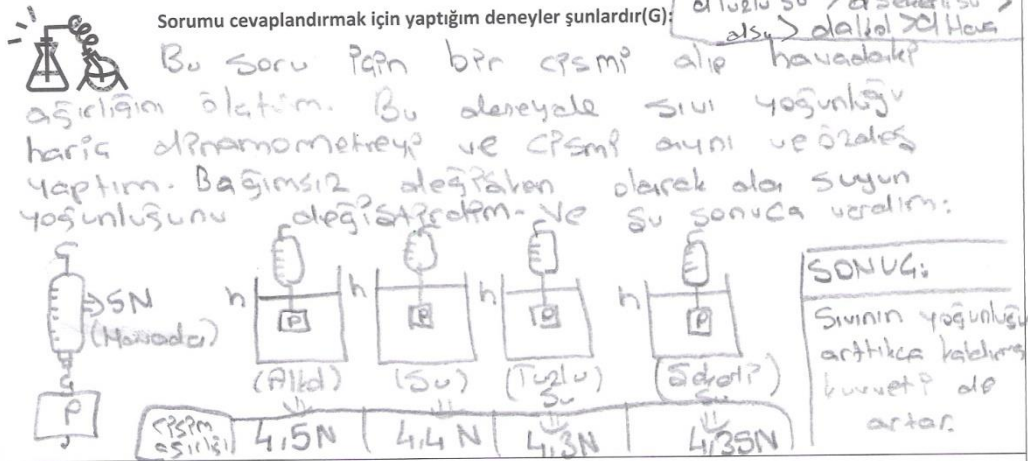 Sorumu cevaplandırmak için yaptığım deneyler şunlardır(G):
dTuzlu su > dŞekerlisu >
dsu > dalkol > dHava
Bu soru için bir cismi alıp havadaki
ağırlığını ölçtüm. Bu deneyde sıvı yoğunluğu
hariç dinamometreyi ve cismi aynı ve özdeş
yaptım. Bağımsız değişken olarak da suyun
yoğunluğunu değiştirdim. Ve şu sonuca vardım:
5N
(Havada)
P
h h h h
P P P P
(Alkol) (Su) (Tuzlu Su) (Şekerli Su)
Cisim ağırlığı 4,5N 4,4 N 4,3N 4,35N
SONUÇ:
Sıvının yoğunluğu
arttıkça kaldırma
kuvveti de
artar.